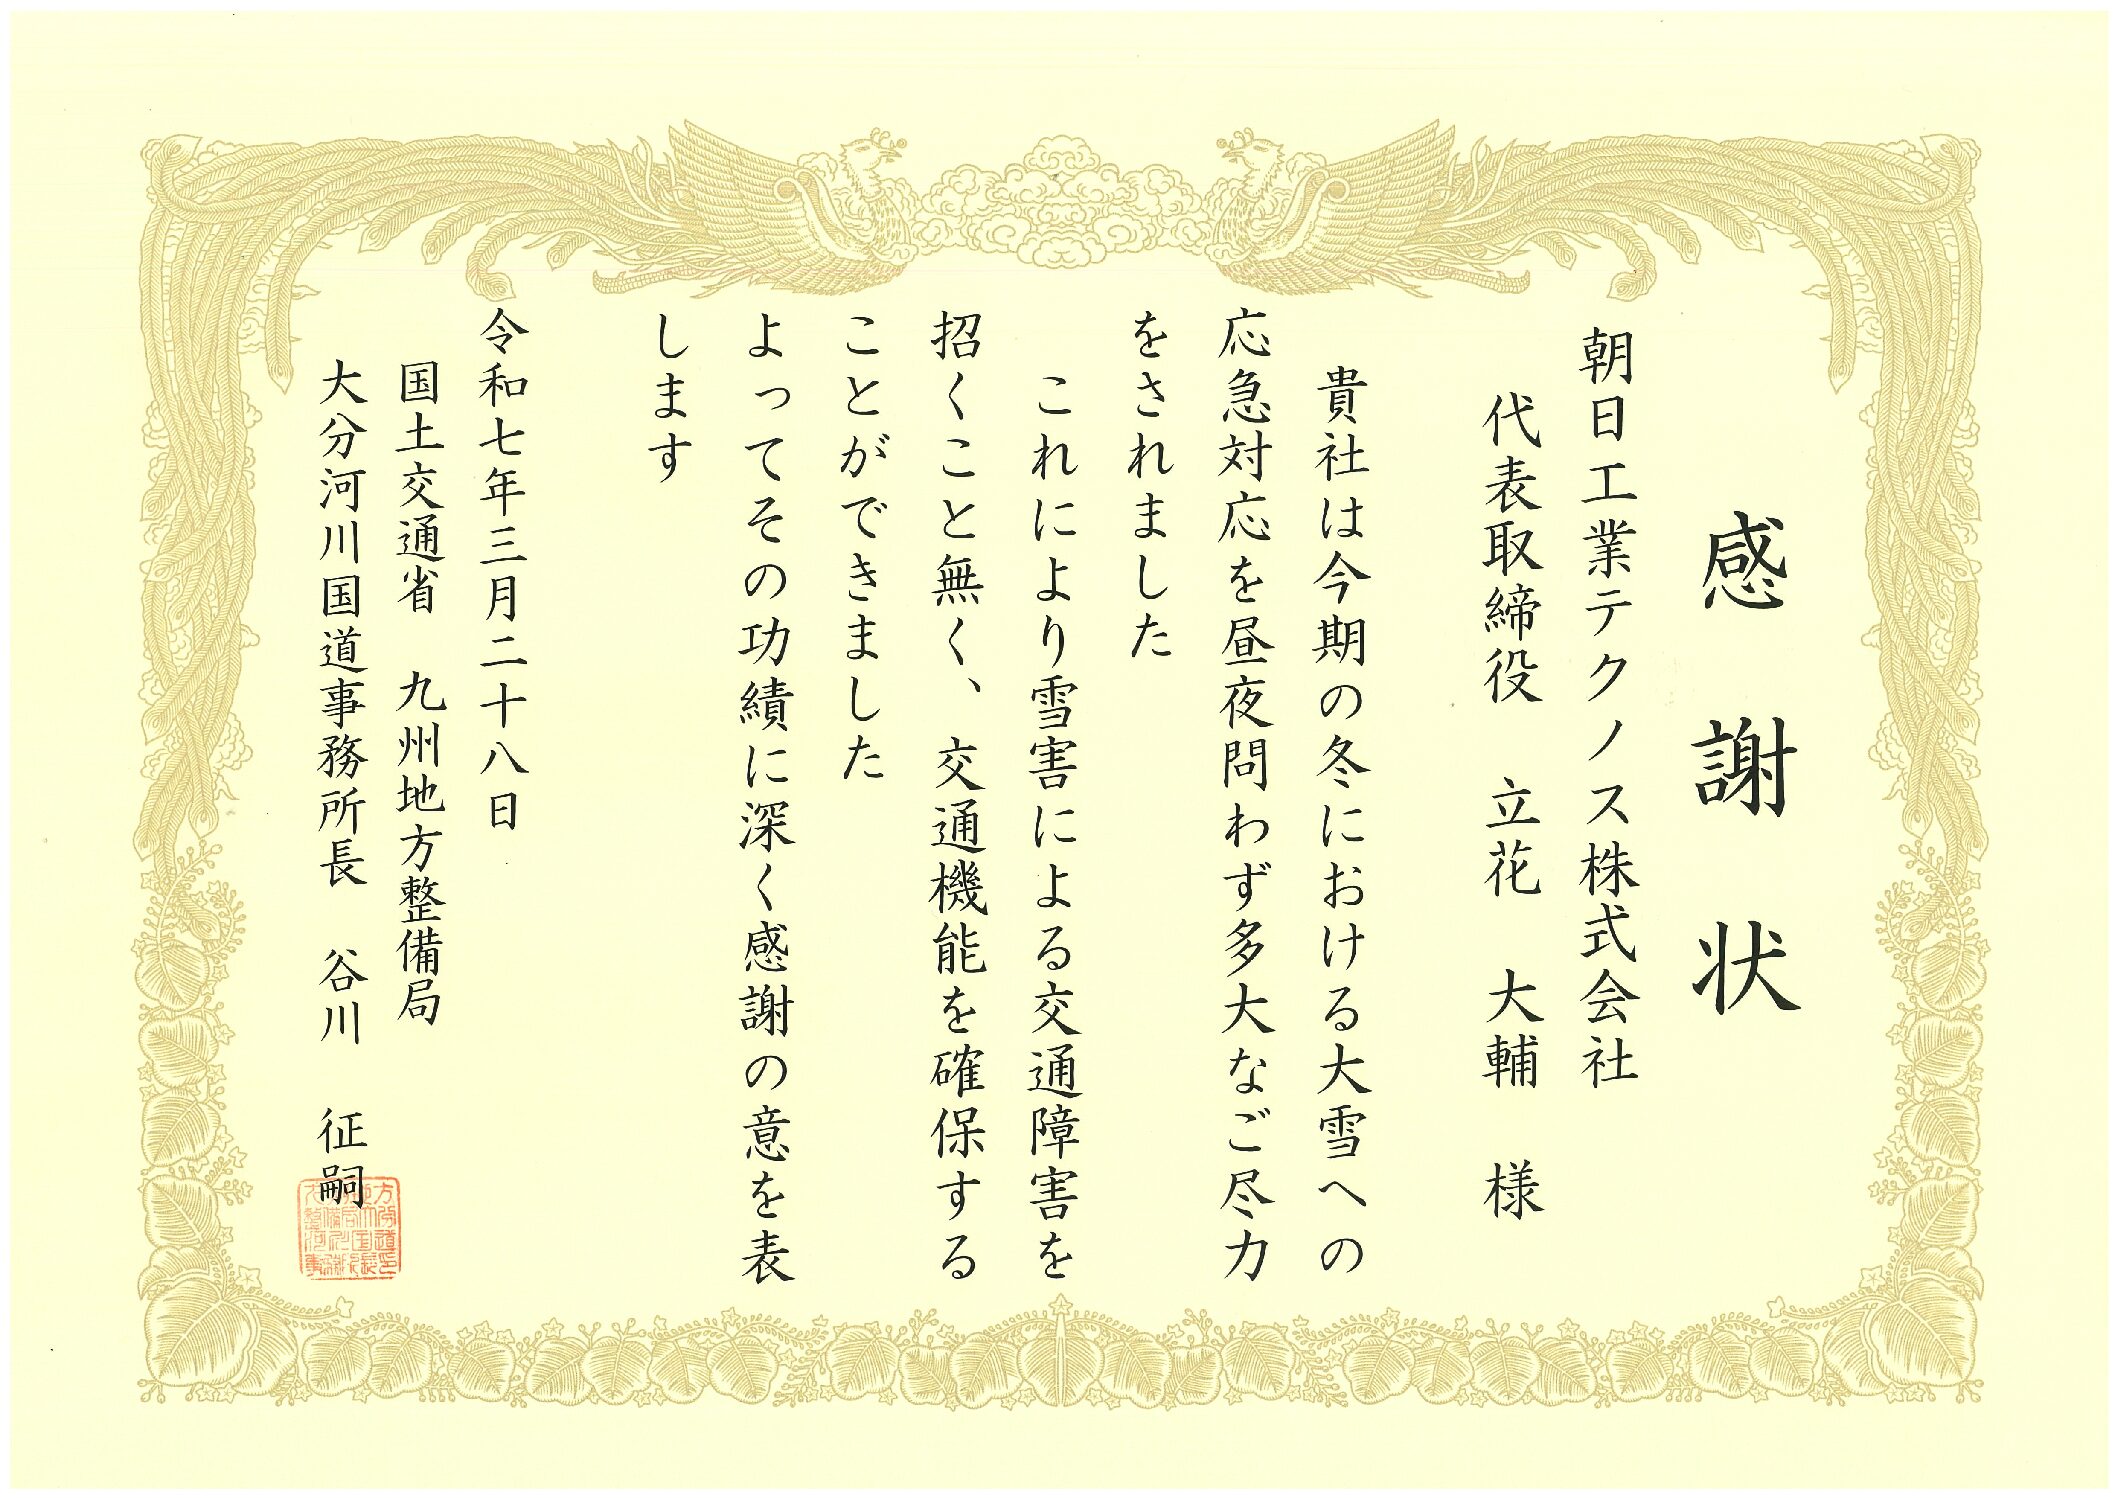 感謝状
朝日工業テクノス株式会社
代表取締役 立花 大輔 様
貴社は今期の冬における大雪への
応急対応を昼夜問わず多大なご尽力
をされました
これにより雪害による交通障害を
招くこと無く、交通機能を確保する
ことができました
よってその功績に深く感謝の意を表
します
令和七年三月二十八日
国土交通省 九州地方整備局
大分河川国道事務所長 谷川 征嗣